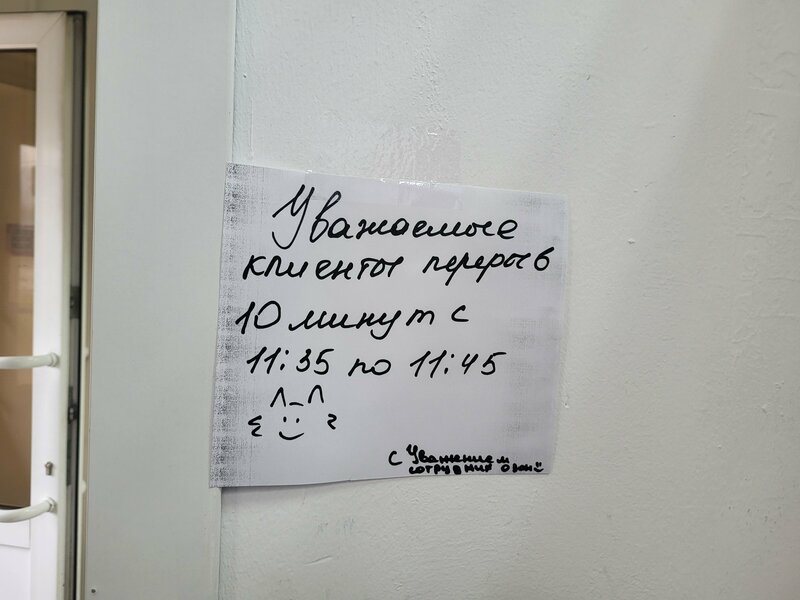 Уважаемые
клиенты перерыв
10 минут с
11:35 по 11:45
с Уважением
сотрудник озон